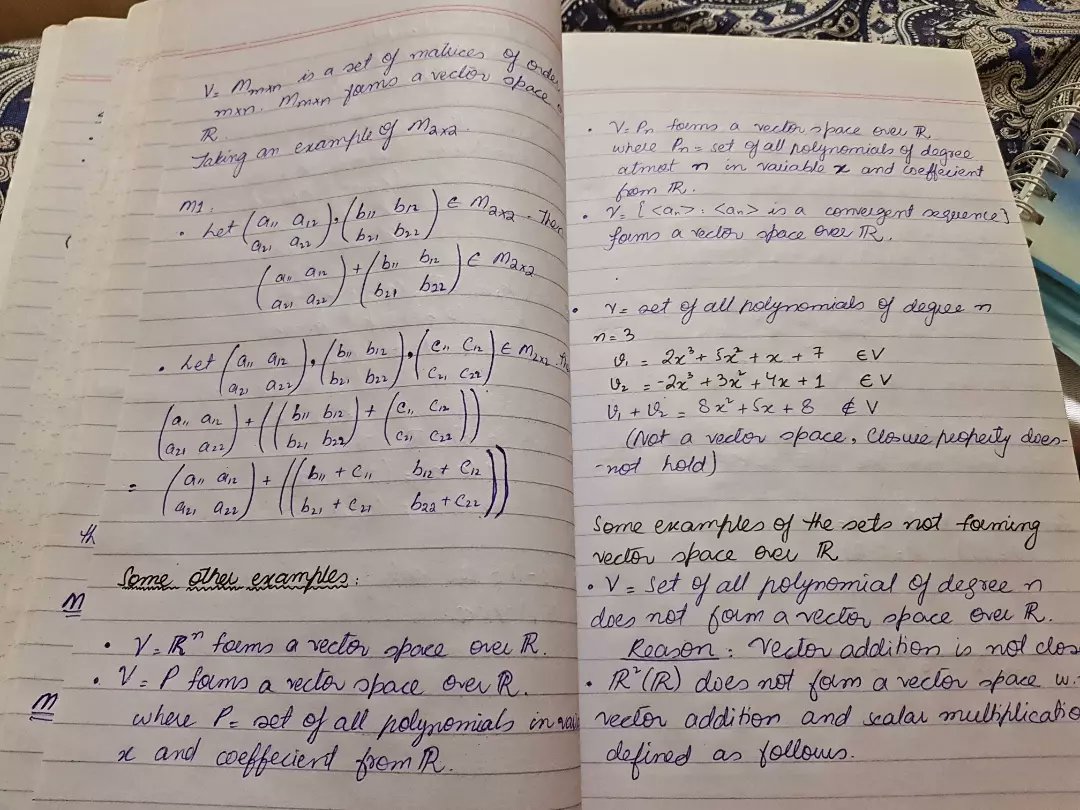 V = Mmxn is a set of matrices of order
mxn. Mmxn forms a vector space
ℝ.
Taking an example of M2x2.
m1:
• Let (a11 a12 a21 a22), (b11 b12 b21 b22) ∈ M2x2. Then
(a11 a12 a21 a22) + (b11 b12 b21 b22) ∈ M2x2
• Let (a11 a12 a21 a22), (b11 b12 b21 b22), (c11 c12 c21 c22) ∈ M2x2.
(a11 a12 a21 a22) + ((b11 b12 b21 b22) + (c11 c12 c21 c22))
= (a11 a12 a21 a22) + ((b11 + c11 b12 + c12 b21 + c21 b22 + c22))
th
Some other examples:
M
• V = ℝⁿ forms a vector space over ℝ.
• V = P forms a vector space over ℝ.
M
where P = set of all polynomials in
x and coeffecient from ℝ.
• V = Pn forms a vector space over ℝ
where Pn = set of all polynomials of degree
atmost n in variable x and coeffecient
from ℝ.
• V = [<an> : <an> is a convergent sequence]
forms a vector space over ℝ.
• V = set of all polynomials of degree n
n = 3
v1 = 2x³ + 5x² + x + 7 ∈ V
v2 = -2x³ + 3x² + 4x + 1 ∈ V
v1 + v2 = 8x² + 5x + 8 ∉ V
(Not a vector space, Closure property does-
-not hold)
Some examples of the sets not forming
vector space over ℝ
• V = set of all polynomial of degree n
does not form a vector space over ℝ.
Reason : Vector addition is not clos
• ℝ²(ℝ) does not form a vector space w.
vector addition and scalar multiplicatio
defined as follows.